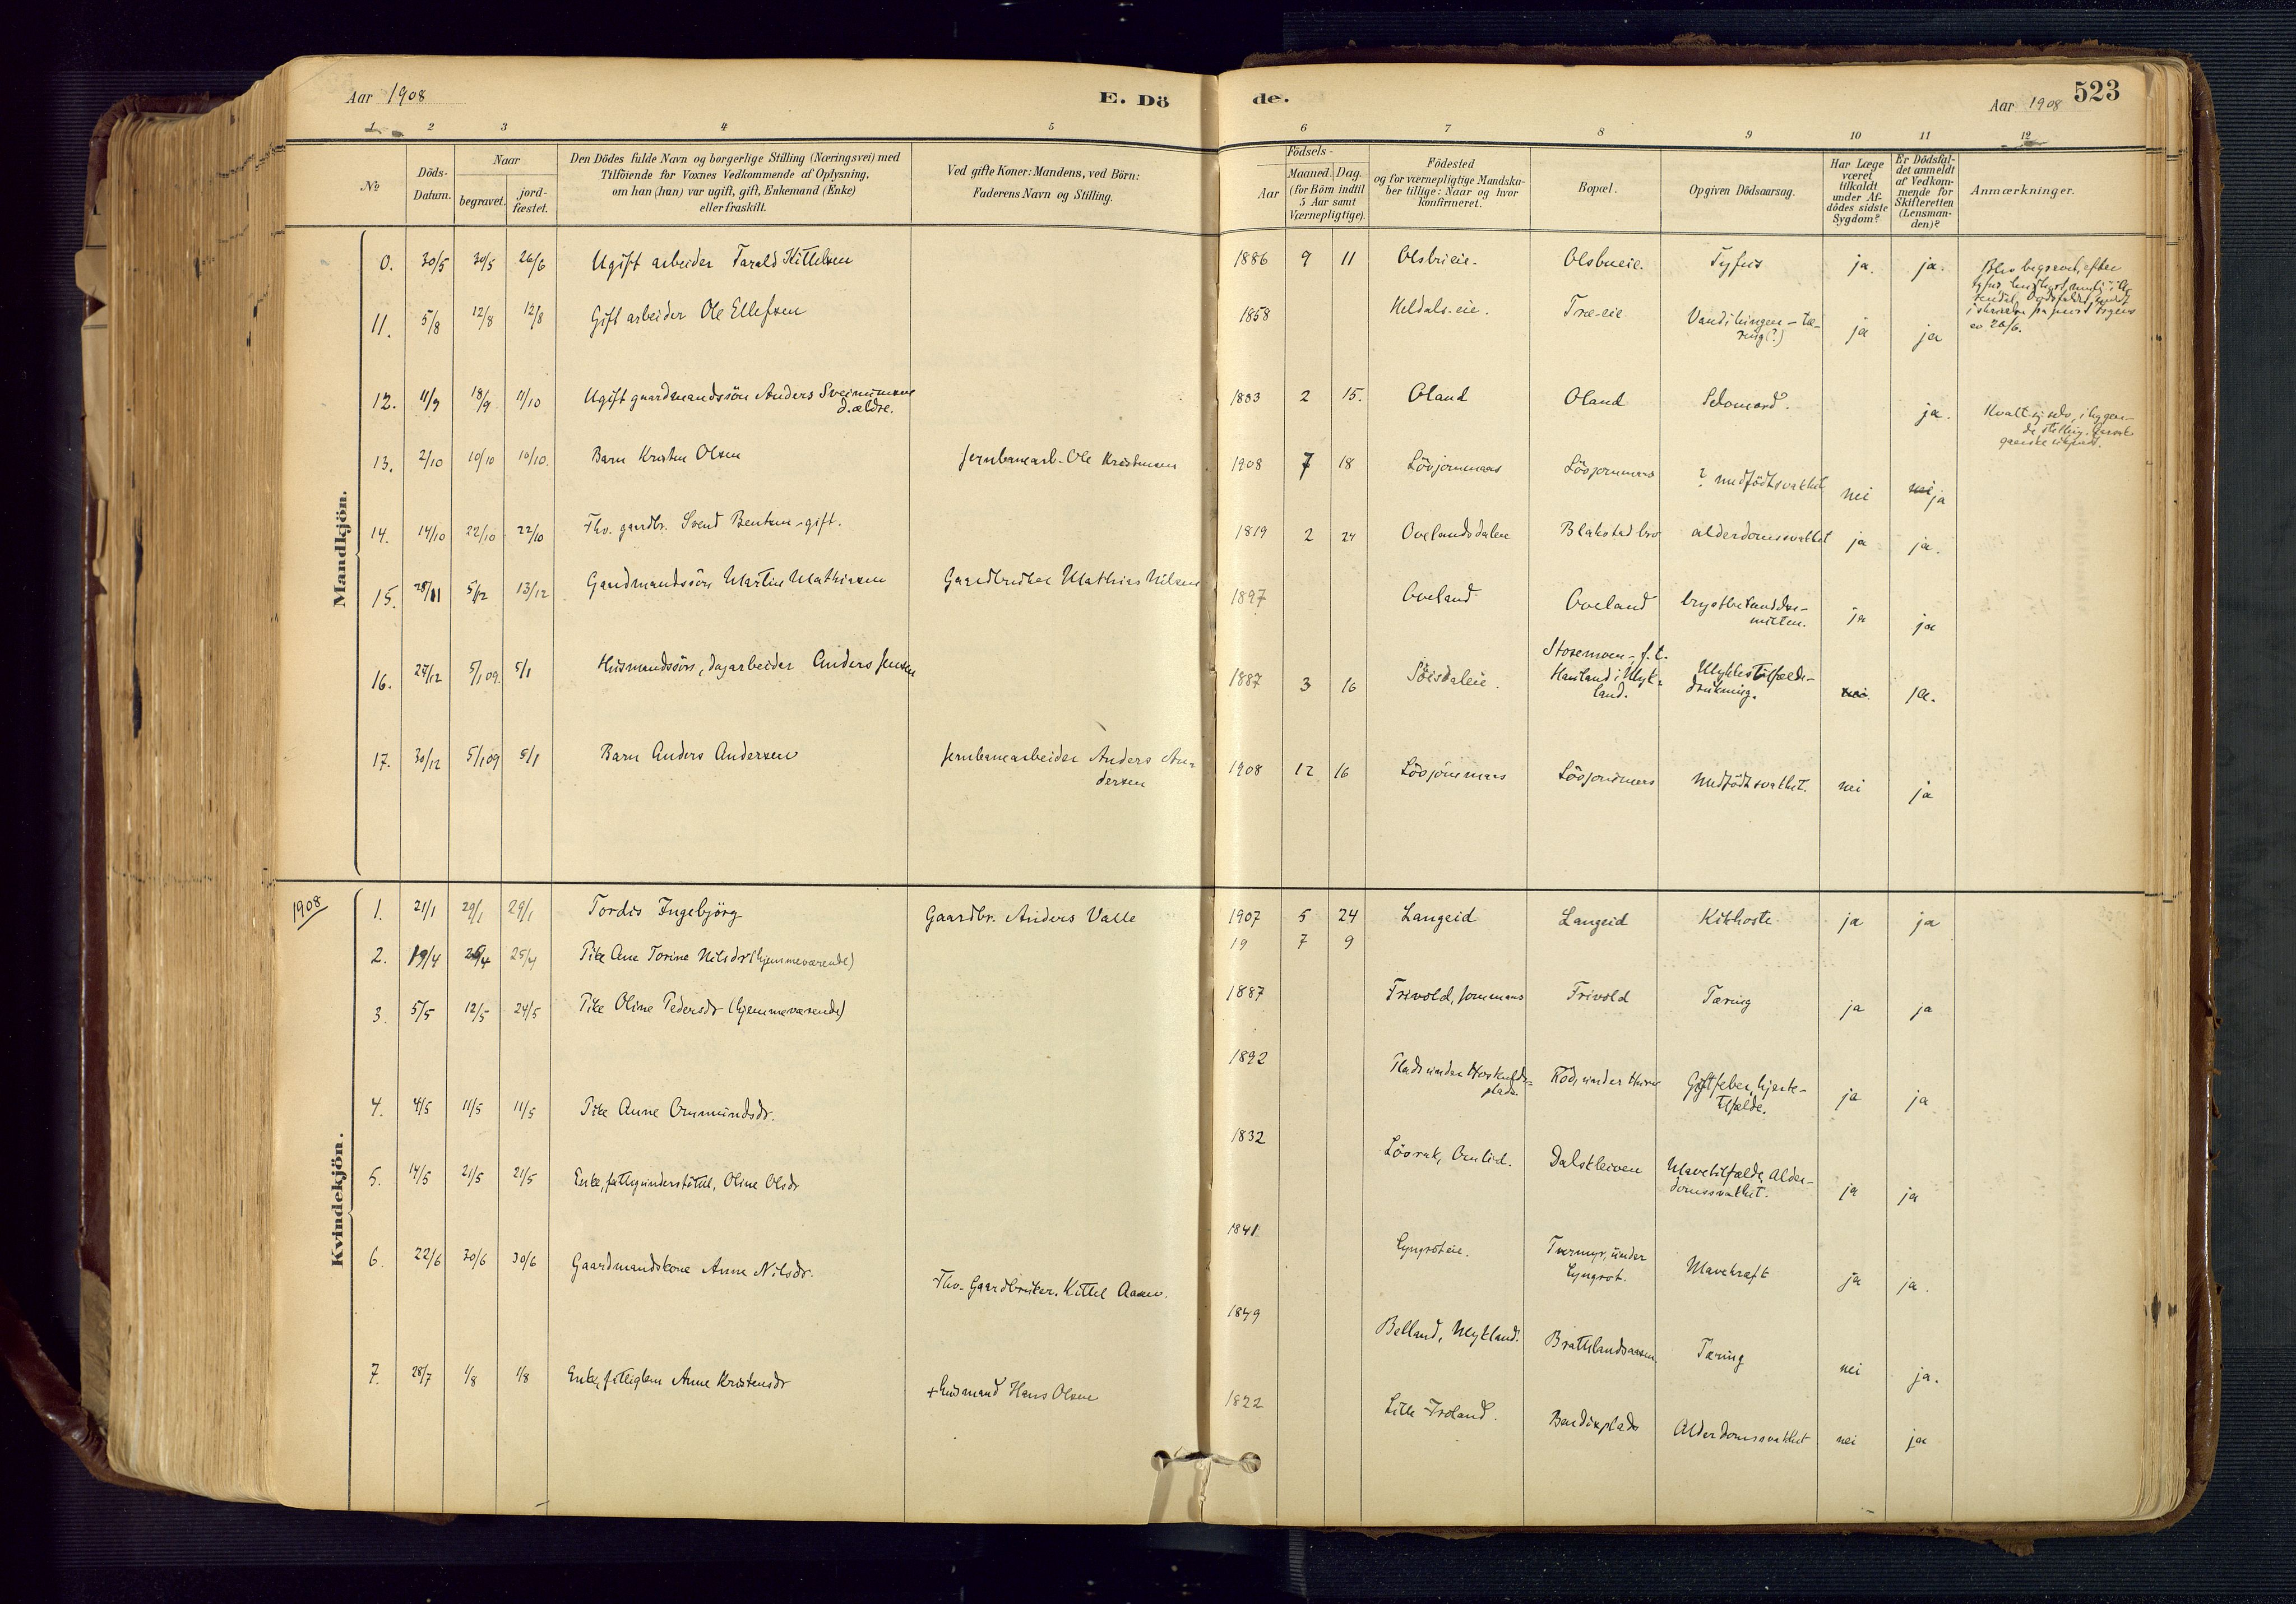 Aar 1908
E. Dö
de.
Aar 1908
523
1 2 3 4 5 6 7 8 9 10 11 12
No
Döds-
Datum.
Naar
begravet.
jord-
fæstet.
Den Dödes fulde Navn og borgerlige Stilling (Næringsvei) med
Tilföiende for Voxnes Vedkommende af Oplysning,
om han (hun) var ugift, gift, Enkemand (Enke)
eller fraskilt.
Ved gifte Koner: Mandens, ved Börn:
Faderens Navn og Stilling.
Födsels-
Aar
Maaned. Dag.
(for Börn indtil
5 Aar samt
Værnepligtige).
Födested
og for værnepligtige Mandska-
ber tillige: Naar og hvor
konfirmeret.
Bopæl.
Opgiven Dödsaarsag.
Har Læge
været
tilkaldt
under Af-
dödes sidste
Sygdom?
Er Dödsfal-
det anmeldt
af Vedkom-
mende for
Skifteretten
(Lensman-
den)?
Anmærkninger.
Mandkjön.
0. 30/5 30/5 26/6 Ugift arbeider Tarald Kittelsen 1886 9 11 Olsbueie. Tyfus ja. ja.
Blev begravet, efter
26/6.
11. 5/8 12/8 12/8 Gift arbeider Ole Ellefsen 1858 Heldals-eie. Træ-eie ja ja
12. 11/9 18/9 11/10 Ugift gaardmandssön Anders
d. ældre.
2 15. Oland Oland Selvmord. ja.
Kvalt sig selv, i liggen-
de stilling.
13. 2/10 10/10 10/10. Barn Kristen Olsen Jernbanearb. Ole Kristensen 1908 7 18 Lövjommaas Lövjommaas ? medfödt svakhet nei ja
14. 14/10 22/10 22/10 Fhv. gaardbr. Svend Bentsen - gift. 1819 2 24 Ovelandsdalen Blakstad bro alderdomssvakhet ja ja.
15. 28/11 5/12 13/12 Gaardmandssön Martin Mathiasen Gaardbruker Mathias Nilsen 1897 Oveland Oveland brystbetændel-
ja ja
16. 27/12 5/1 09. 5/1 Husmandssön, dagarbeider Anders Jensen 1887 3 16
Storemoen, f. t.
Hauland i Myk-
land.
Ulykkestilfælde-
drukning.
ja.
17. 30/12 5/1 09 5/1 Barn Anders Andersen Jernbanearbeider Anders An-
dersen
1908 12 16 Lövjommaas Lövjommaas Medfödt svakhet. nei ja
1908
Kvindekjön.
1. 21/1 29/1 29/1 Tordis Ingebjörg Gaardbr. Anders Valle 1907 5 24 Langeid Langeid Kikhoste ja ja
19 7 9
2. 19/4 25/4 25/4 Pike Ane Torine Nilsdr (hjemmeværende) 1887 Frivold, Jommaas Frivold Tæring ja ja
3. 5/5 12/5 24/5 Pike Oline Pedersdr (hjemmeværende) 1892
Giftfeber, hjerte-
tilfælde.
ja ja
4. 4/5 11/5 11/5 Pike Anne Ommundsdr. 1832 Lövrak, Omlid. Dalskleiven Mavetilfælde, Alder-
domssvakhet.
ja ja
5. 14/5 21/5 21/5 Enke, fattigunderstöttet, Oline Olsdr 1841 Lyngroteie.
Tvermyr, under
Lyngrot.
Mavekræft ja ja.
6. 22/6 30/6 30/6 Gaardmandskone Anne Nilsdr. Fhv. Gaardbruker. Kittel Aasen. 1849 Belland, Mykland. Brattelandsaasen. Tæring nei ja.
7. 28/7 1/8 1/8 Enke, fattiglem Anne Kristensdr + Husmand Hans Olsen 1822 Lille Froland. Bendixplads Alderdomssvakhet nei ja